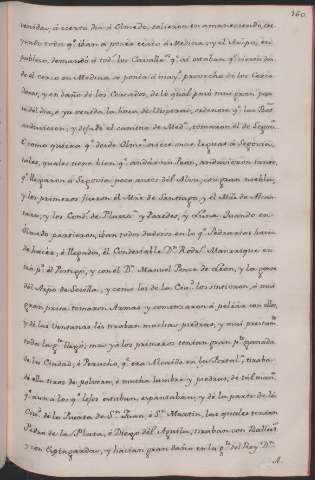 160.
venidas, á cierto dia á Olmedo, salieron en amaneciendo, cre
yendo todos q.e iban á poner cerco á Medina; y el Arzpo, en
público, demandó á todos los Cavalleros q.e ahí estaban q.e
de el cerco en Medina se ponia á may.r provecho de los Cerca
dores, y en daño de los Cercados, de lo qual pasó mui gran par
te del dia, é ya venida la hora de Visperas, ordenose q.e las Bat.s
anduviesen, y dejado el camino de Med.a, tomaron el de Segov.a
E como quiera q.e desde Olmedo once leguas á Segovia,
tales, quales tiene bien q.e andar un Peon, anduvieron tanto,
q.e llegaron á Segovia poco antes del Alva, con gran niebla,
y los primeros fueron el M.re de Santiago, y el M.re de Alcan
tara, y los Condes de Plasen.a y Paredes, y Luna. Quando en
dicho partieron, iban todos dudosos en lo q.e Pedrarias havia
de hacer, é llegados, el Condestable D.n Rodr.o Manrrique en
tró p.r el Postigo, y con él D.n Manuel Ponce de Leon, y la gente
del Arzpo de Sevilla, y como los de la Ciu.d los sintieron, á mui
gran priesa tomaron Armas y comenzaron á pelear con ellos,
y de las Ventanas les tiraban muchas piedras, y mui presto
toda la g.te llegó; mas ya los primeros tenian gran p.te ganada
de la Ciudad, é Perucho, q.e era Alcaide en la Fortal.a, tiraba
de ella tiros de polvora, é mucha lumbre y piedras, de tal man.a
q.e aun a los q.e lejos estaban, espantaban, y de la parte de la
Ciu.d de la Puerta de S.n Juan, é S.n Martin, las quales tenian
Pedro de la Plata, é Diego del Aguila, tiraban con Ballest.s
y con Espingardas, y hacian gran daño en la g.te del Rey D.n
A.